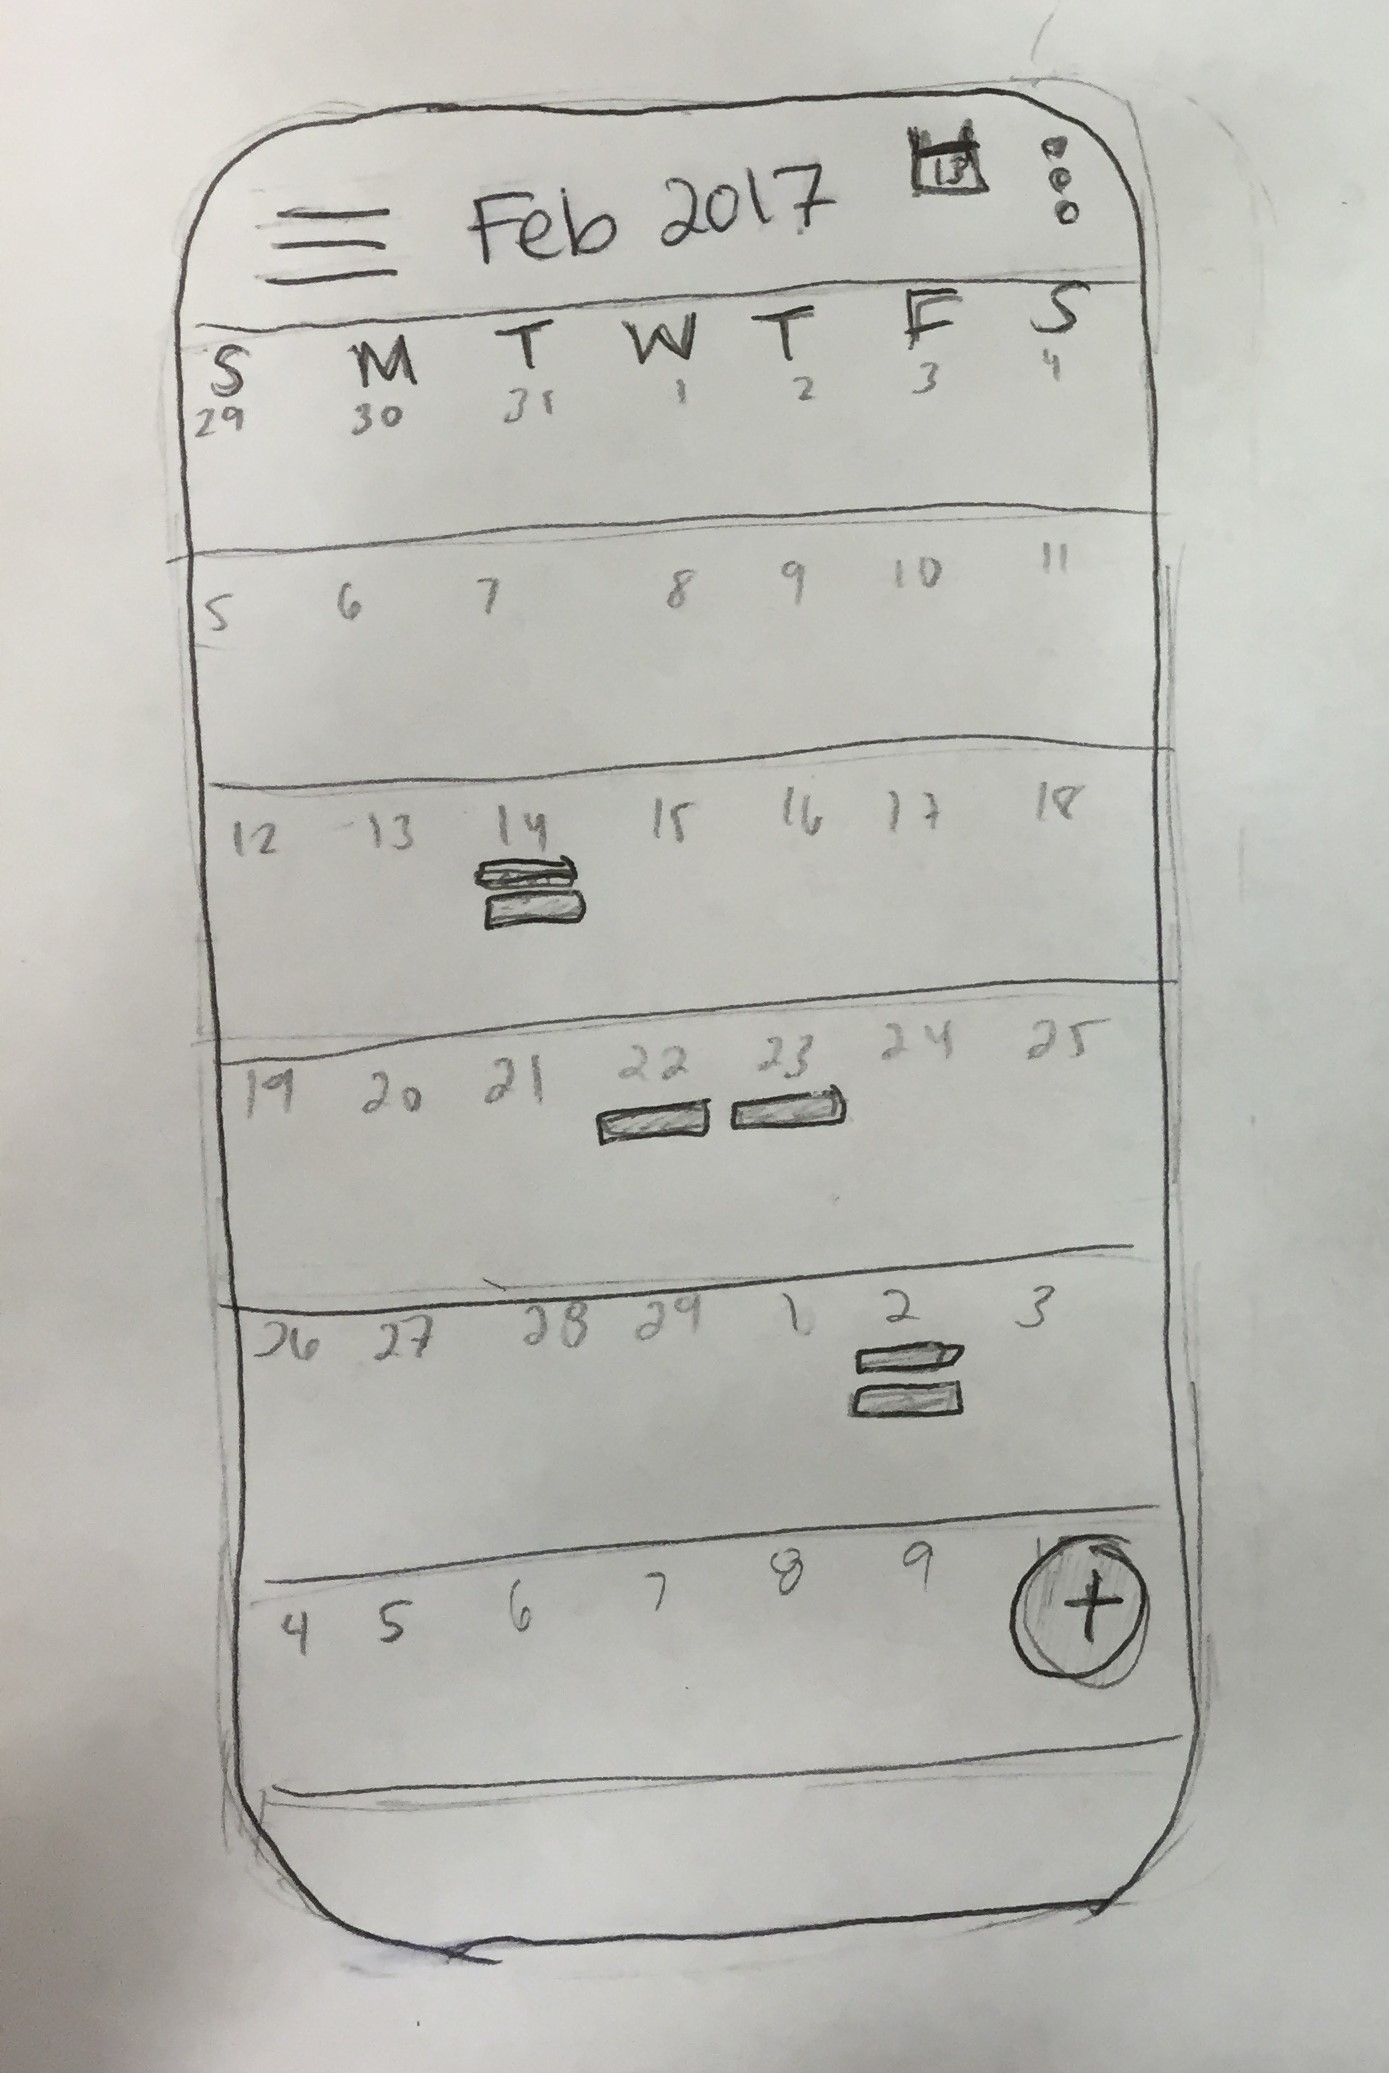 Feb 2017 13
S M T W T F S
29 30 31 1 2 3 4
5 6 7 8 9 10 11
12 13 14 15 16 17 18
19 20 21 22 23 24 25
26 27 28 29 1 2 3
4 5 6 7 8 9
+